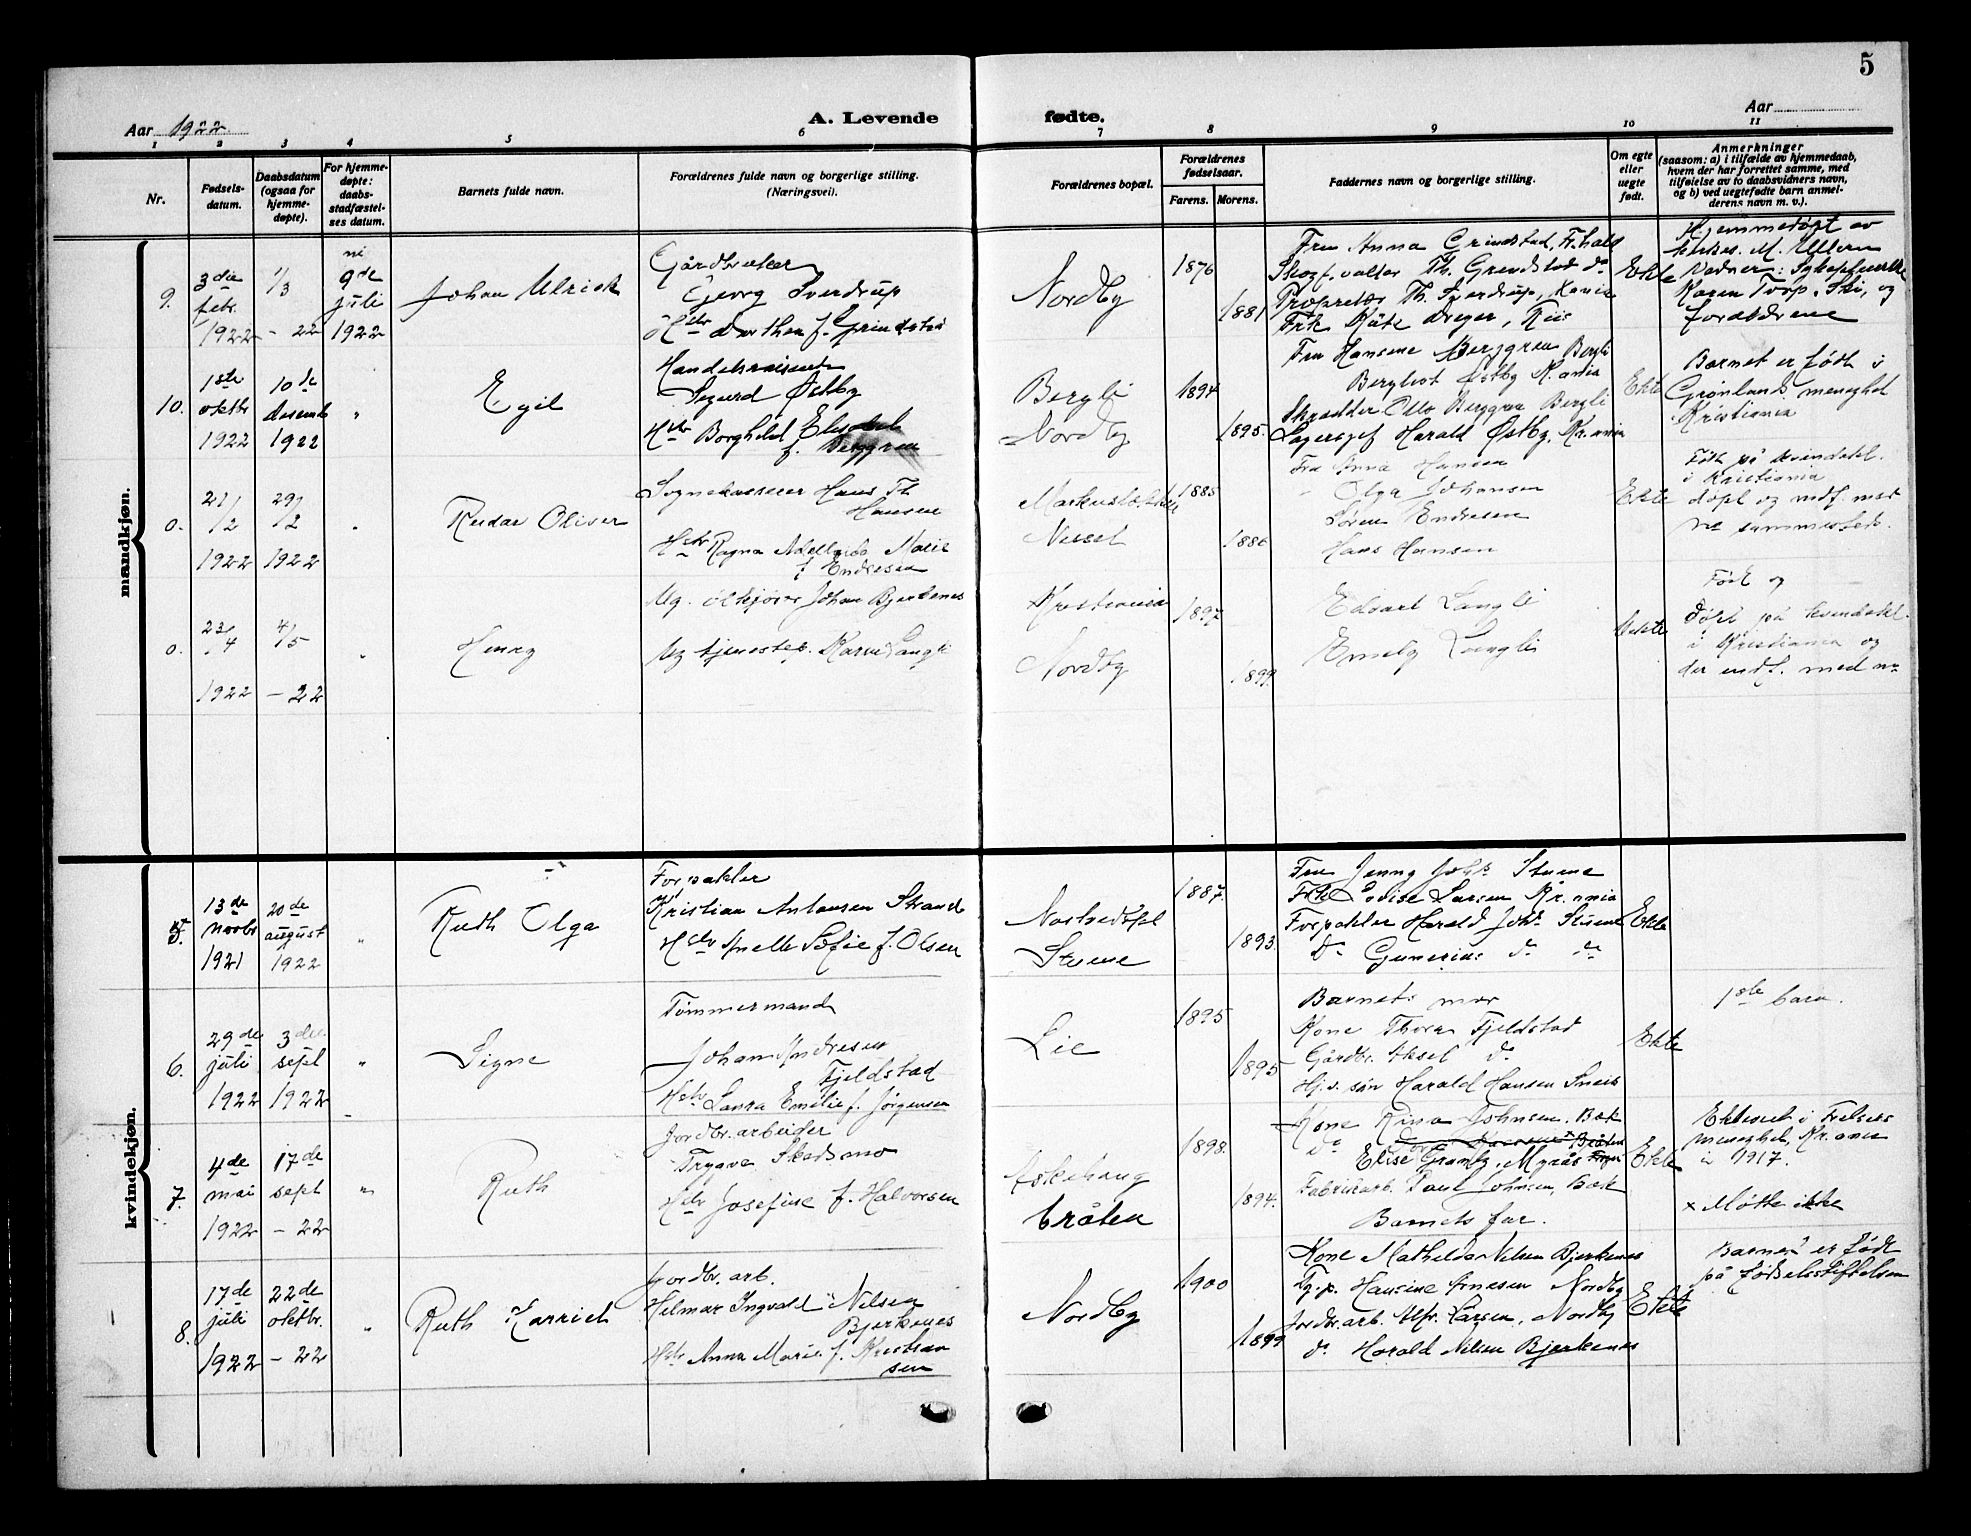 5
Aar 1922
A. Levende fødte.
Aar
1 2 3 4 5 6 7 8 9 10 11
Nr.
Fødsels-
datum.
Daabsdatum
(ogsaa for
hjemme-
døpte).
For hjemme-
døpte:
daabs-
stadfæstel-
ses datum.
Barnets fulde navn.
Forældrenes fulde navn og borgerlige stilling.
(Næringsvei).
Forældrenes bopæl.
Forældrenes
fødselsaar.
Farens. Morens.
Faddernes navn og borgerlige stilling.
Om egte
eller
uegte
født.
Anmerkninger
(saasom: a) i tilfælde av hjemmedaab,
hvem der har forrettet samme, med
tilføielse av to daabsvidners navn,
og b) ved uegtefødte barn anmel-
derens navn m. v.).
mandkjøn.
9.
3die
febr.
1922
1/3
- 22
9de
juli
1922
Johan Ulrick
Gårdbruker
Georg Sverdrup
Hstr Dorthea f. Grindstad
Nordby
1876
1881
Fru Anna Grindstad, Fr.hald
Skogf.valter Th. Grindstad do
Proprietær Th. Sverdrup,
Frk Käte Dreyer, Riis
Ekte
Hjemmedøpt av
M. Ullern
Karen Torp, Ski, og
forældrene
10.
1ste
oktbr
1922
10de
desemb
1922
"
Egil
Handelsreisende
Sigurd Østby
Hstr Borghild Elisabeth
f. Berggren
Bergli
Nordby
1894
1895.
Fru Hansine Berggren Bergli
Bergliot Østby Kr.ania
Skrædder Otto Berggren Bergli
Lagersjef Harald Østby, Kr.ania
Ekte
Barnet er født i
Grønlands menighet
Kristiania
0.
21/
/2
1922
29/
/2
1922
"
Reidar Oliver
Sognekasserer Hans Th
Hansen
Hstr Ragna Marie
f Endresen
Nesset
1885
1886
Fru Anna Hansen
" Olga Johansen
Søren Endresen
Hans Hansen
Ekte
Født på kvindekl.
i Kristiania
døpt og indf. med
no sammesteds.
0.
23/4
1922
4/5
- 22
"
Henry
Ug. Johan Bjerkenes
Ug tjenestep. Karen Langli
Kristiania
Nordby
1897
1899.
Edvart Langli
Emely Langli
Uekte
Født og
døpt på kvindekl.
i Kristiania og
der indf. med no
kvindekjøn.
5.
13de
novbr
1921
20de
august
1922
"
Ruth Olga
Forpakter
Kristian Antonsen Strand
Hstr Anette Sofie f. Olsen
Stuene
1887.
1893.
Fru Jenny Johs Stuene
Frk Lovise Larsen Kr.ania
Forpakter Harald Johs Stuene
Do Gunerius do do
Ekte
6.
29de
juli
1922
3die
sept
1922
"
Signe
Tømmermand
Johan Andresen
Fjeldstad
Hstr Laura Emilie f. Jørgensen
Lie
1895
1895
Barnets mor
Kone Thora Fjeldstad
Gårdbr. Aksel do
Harald Hansen
Ekte
1ste barn.
7.
4de
mai
1922
17de
sept
- 22
"
Ruth
Jordbr.arbeider
Trygve Skedsmo
Hstr Josefine f. Halvorsen
Askehaug
bråten
1898.
1894.
Kone Rina Johnsen, Bæk
Do Bråten
Elise Granby, Myrås
Fabrikarb. Paul Johnsen, Bæk
Barnets far.
Ekte
Ekteviet i Frelsers
menighet, Kr.ania
i 1917.
x Møtte ikke
8.
17de
juli
1922
22de
oktbr.
- 22
"
Ruth Harriet
Jordbr. arb.
Hilmar Ingvald Nilsen
Bjerkenes
Hstr Anna Marie f. Kristian
sen
Nordby
1900
1899
Kone Mathilde Nilsen Bjerkenes
Tj.p. Hansine Arnesen Nordby
Jordbr.arb. Alfr. Larsen, Nordby
do Harald Nilsen Bjerkenes
Ekte
Barnet er født
på fødselsstiftelsen